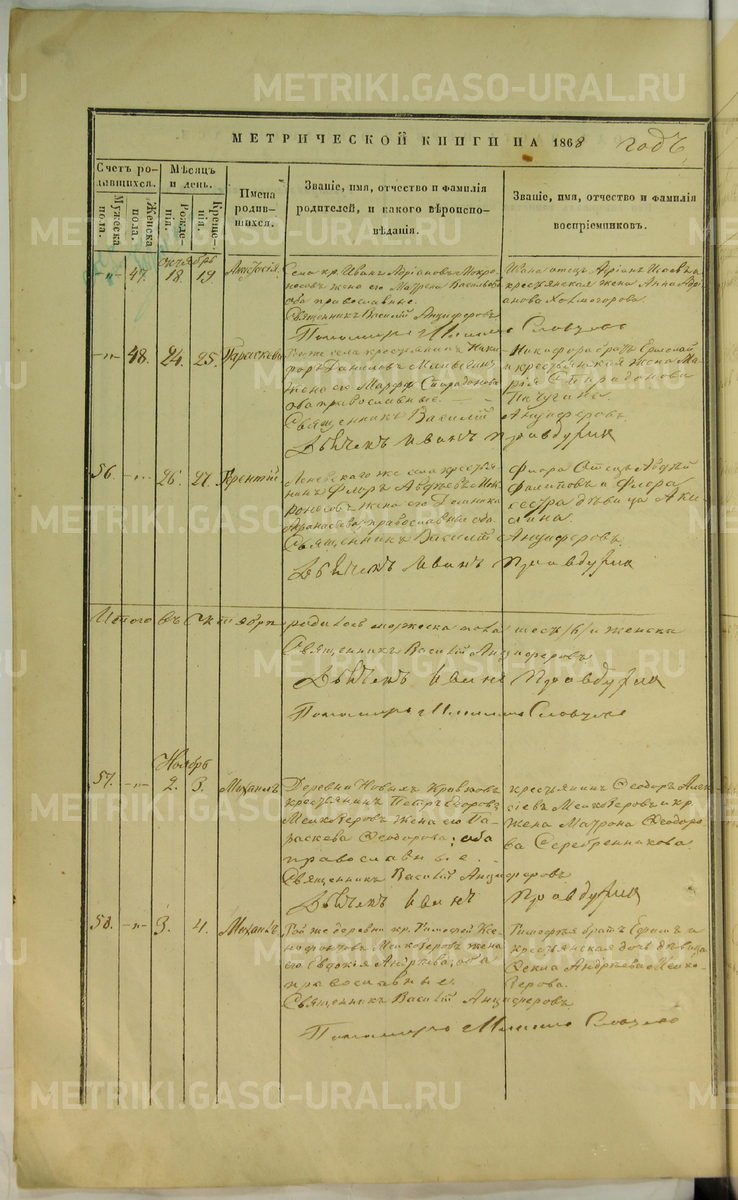 МЕТРИЧЕСКОЙ КНИГИ НА 1868 годъ
Счетъ родившихся.
Мужеска пола.
Женска пола.
Мѣсяцъ и день.
Рожденія.
Крещенія.
Имена родившихся.
Званіе, имя, отчество и фамилія родителей, и какого вѣроисповѣданія.
Званіе, имя, отчество и фамилія воспріемниковъ.
октябрь
-"- 47. 18. 19
Села кр. Иванъ Адріановъ
жена его Матрена Васильева
оба православные.
Священникъ Василій Анциферовъ
Ивана отецъ Адріанъ Исаевъ и
крестьянская жена Анна Адрі-
анова Холмогорова
Пономарь Словцовъ
-"- 48. 24. 25. Параскева
Того же села крестьянинъ Ники-
форъ Даниловъ
жена его Марфа Спиридонова
оба православные.
Священникъ Василій Анциферовъ.
Никифора братъ Ермолай
и крестьянская жена Ма-
рія Спиридонова
Пичугина.
Дьячекъ Иванъ Правдухин
56. -"- 26. 27. Терентій
же села крестья-
нинъ Флоръ Авдѣевъ Мок-
роносовъ жена его Домника
православные оба.
Священникъ Василій Анциферовъ.
Флора Отецъ Авдѣй
Филиповъ и Флора
сестра дѣвица Аки-
лина.
Дьячекъ Иванъ Правдухин
Итого въ Октябрѣ родилось мужеска пола шесть /6/ и женска
Священникъ Василій Анциферовъ
Дьячекъ Иванъ Правдухин
Пономарь Словцовъ
Ноябрь
57. -"- 2. 3. Михаилъ
Деревни Новыхъ Кривковъ
крестьянинъ Петръ Ѳедоровъ
Мелкозеровъ жена его Па-
раскева Ѳеодорова; оба
православные.
Священникъ Василій Анциферовъ
крестьянинъ Ѳеодоръ Алек-
сѣевъ Мелкозеровъ и кр.
жена Матрона Ѳеодоро-
ва Серебренникова.
Дьячекъ Иванъ Правдухин
58. -"- 3. 4. Михаилъ
Той же деревни кр. Тимофей Ксе-
нофонтовъ Мелкозеровъ жена
его Евдокія Андреева; оба
православные.
Священникъ Василій Анциферовъ
Тимофея братъ Ефимъ и
крестьянская дочь дѣвица
Андреева Мелко-
зерова.
Пономарь Словцовъ
METRIKI.GASO-URAL.RU